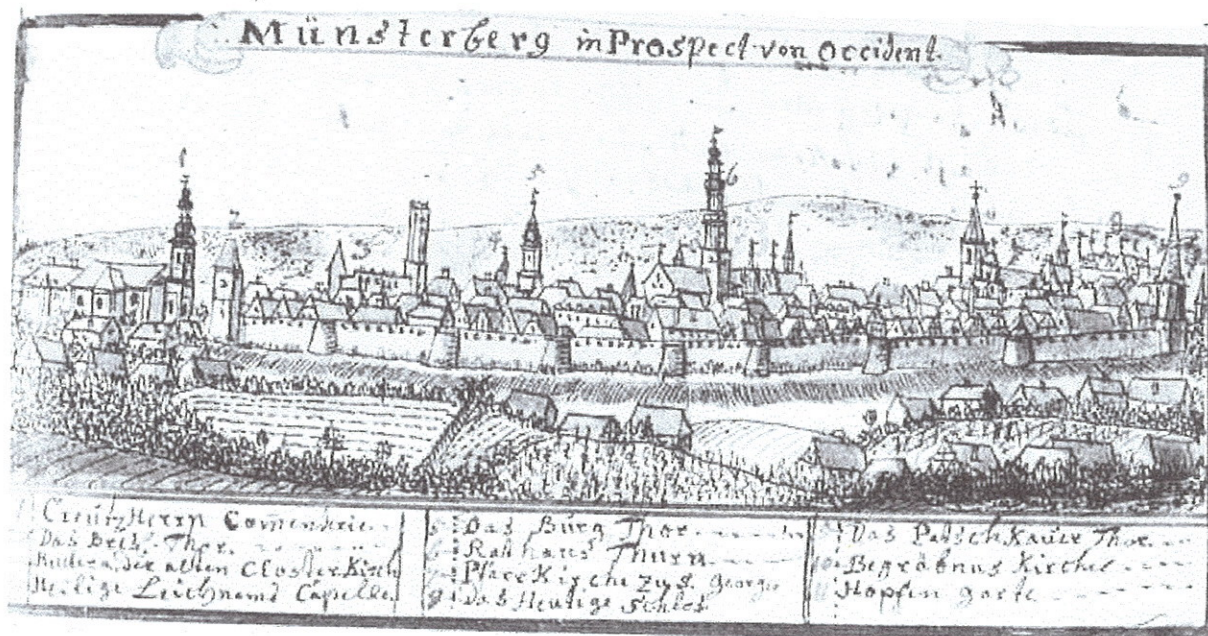 Münsterberg in Prospect von Occident.
1 2 5 6 9
Creutz Herrn
Das Bresl. Thor.
der alten Closter Kirch
Heilige Leichnams Capelle
Das Burg Thor
Rathaus Thurn
Pfarr Kirche zu S. Georgio
Das Heutige Schlos
Das Patschkauer Thor
Begräbnus Kirche
Hopfen garte